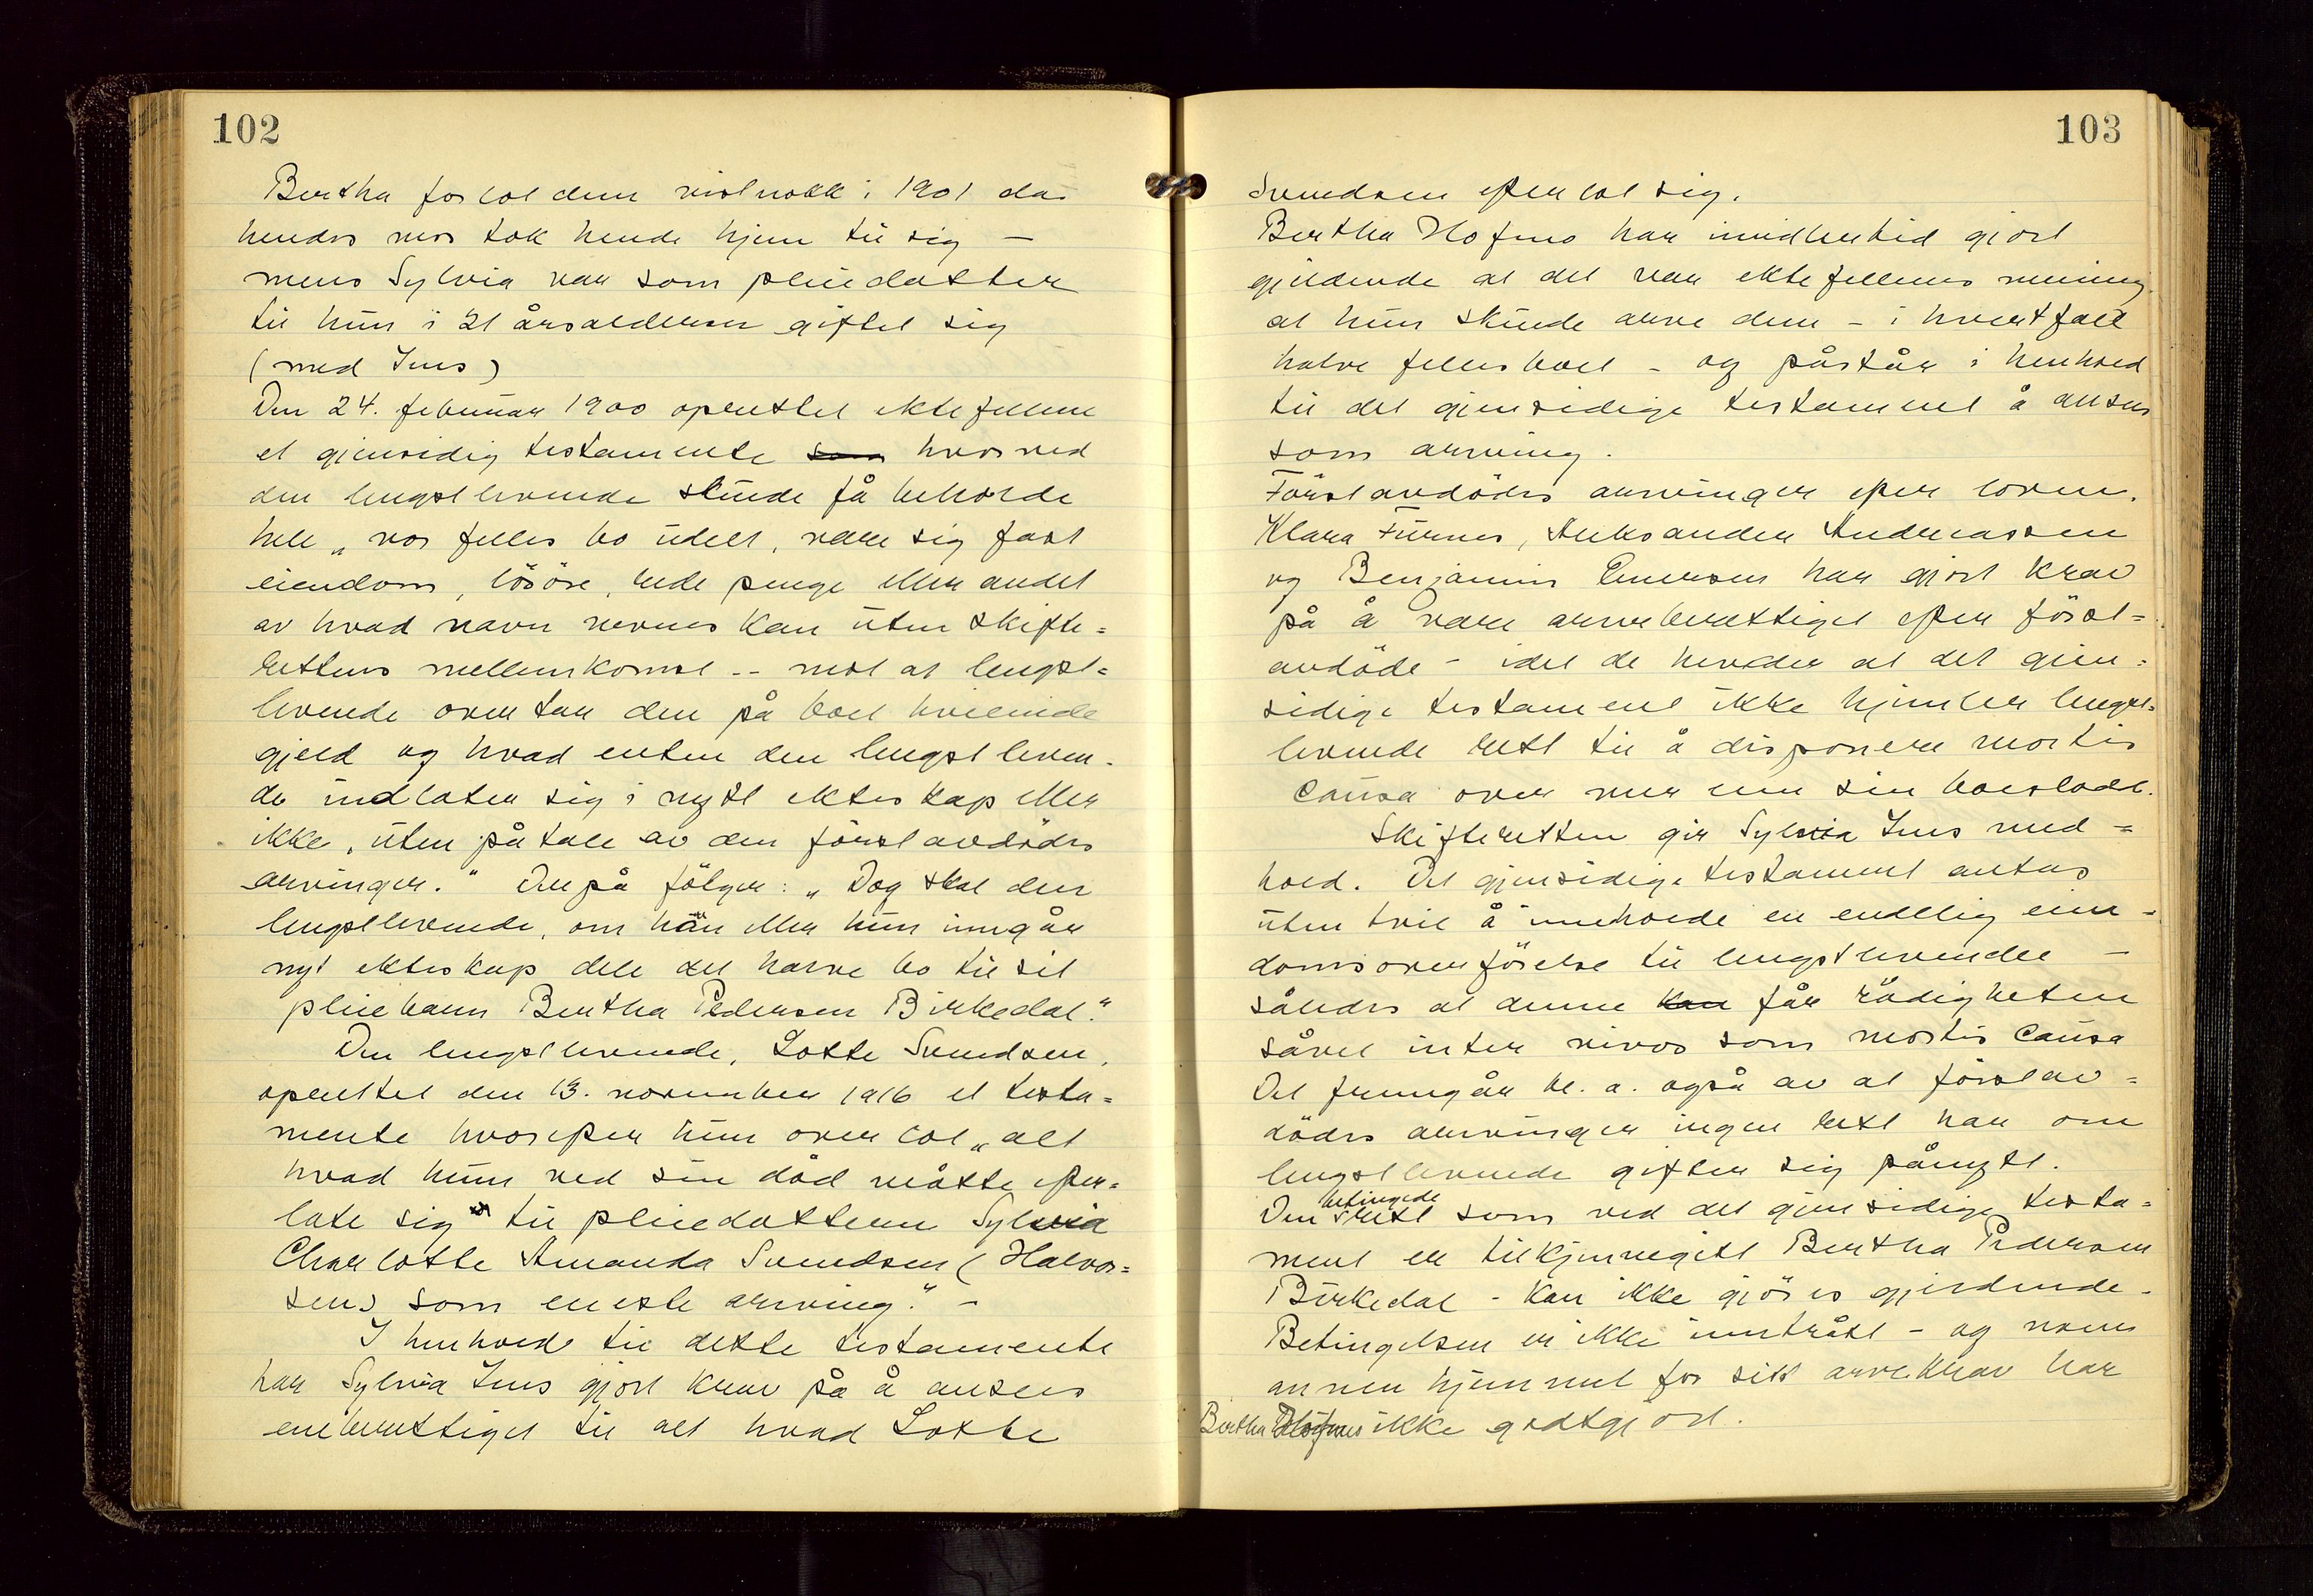 102
Bertha forlot dem vistnokk i 1901 da
hendes mor tok hende hjem til sig —
mens Sylvia var som pleiedatter
til hun i 21 årsalderen giftet sig
(med Jens)
Den 24. februar 1900 oprettet ektefellene
et gjensidig testamente som hvorved
den lengstlevende skulde få beholde
hele „vor felles bo udelt, være sig fast
eiendom, lösöre, rede penge eller andet
av hvad navn nevnes kan uten skifte=
rettens mellemkomst -- mot at lengst=
levende overtar den på boet hvilende
gjeld og hvad enten den lengstleven-
de indlater sig i nytt ekteskap eller
ikke, uten påtale av den förstavdödes
arvinger." Derpå fölger: „Dog skal den
lengstlevende, om han eller hun inngår
nyt ekteskap dele det halve bo til sit
pleiebarn Bertha Pedersen Birkedal."
Den lengstlevende, Lotte Svendsen,
oprettet den 13. november 1916 et testa=
mente hvorefter hun overlot „alt
hvad hun ved sin död måtte efter=
late sig til pleiedatteren Sylvia
Charlotte Amanda Svendsen (Halvor=
sen) som eneste arving." -
I henhold til dette testamente
har Sylvia Jens gjort krav på å ansees
eneberettiget til alt hvad Lotte
103
Svendsen efterlot sig.
Bertha Hofmo har imidlertid gjort
gjeldende at det var ektefellenes mening
at hun skulde arve dem - i hvertfall
halve fellesboet - og påstår i henhold
til det gjensidige testament å anses
som arving.
Förstavdödes arvinger efter loven.
Klara Furnes, Aleksander Andreassen
og Benjamin Enersen har gjort krav
på å være arveberettiget efter först=
avdöde - idet de hevder at det gjen=
sidige testament ikke hjemler lengst=
levende rett til å disponere mortis
causa over mer enn sin boeslodd.
Skifteretten gir Sylvia Jens med=
hold. Det gjensidige testament antas
uten tvil å inneholde en endelig eien-
domsoverförelse til lengstlevende —
således at denne kan får rådigheten
såvel inter vivos som mortis causa
Det fremgår bl. a. også av at förstav=
dödes arvinger ingen rett har om
lengstlevende gifter sig pånytt.
Den betingede rett som ved det gjensidige testa=
ment er tilkjennegitt Bertha Pedersen
Birkedal - kan ikke gjöres gjeldende.
Betingelsen er ikke inntrått - og noen
annen hjemmel for sitt arvekrav har
Bertha Hofmo ikke godtgjort.